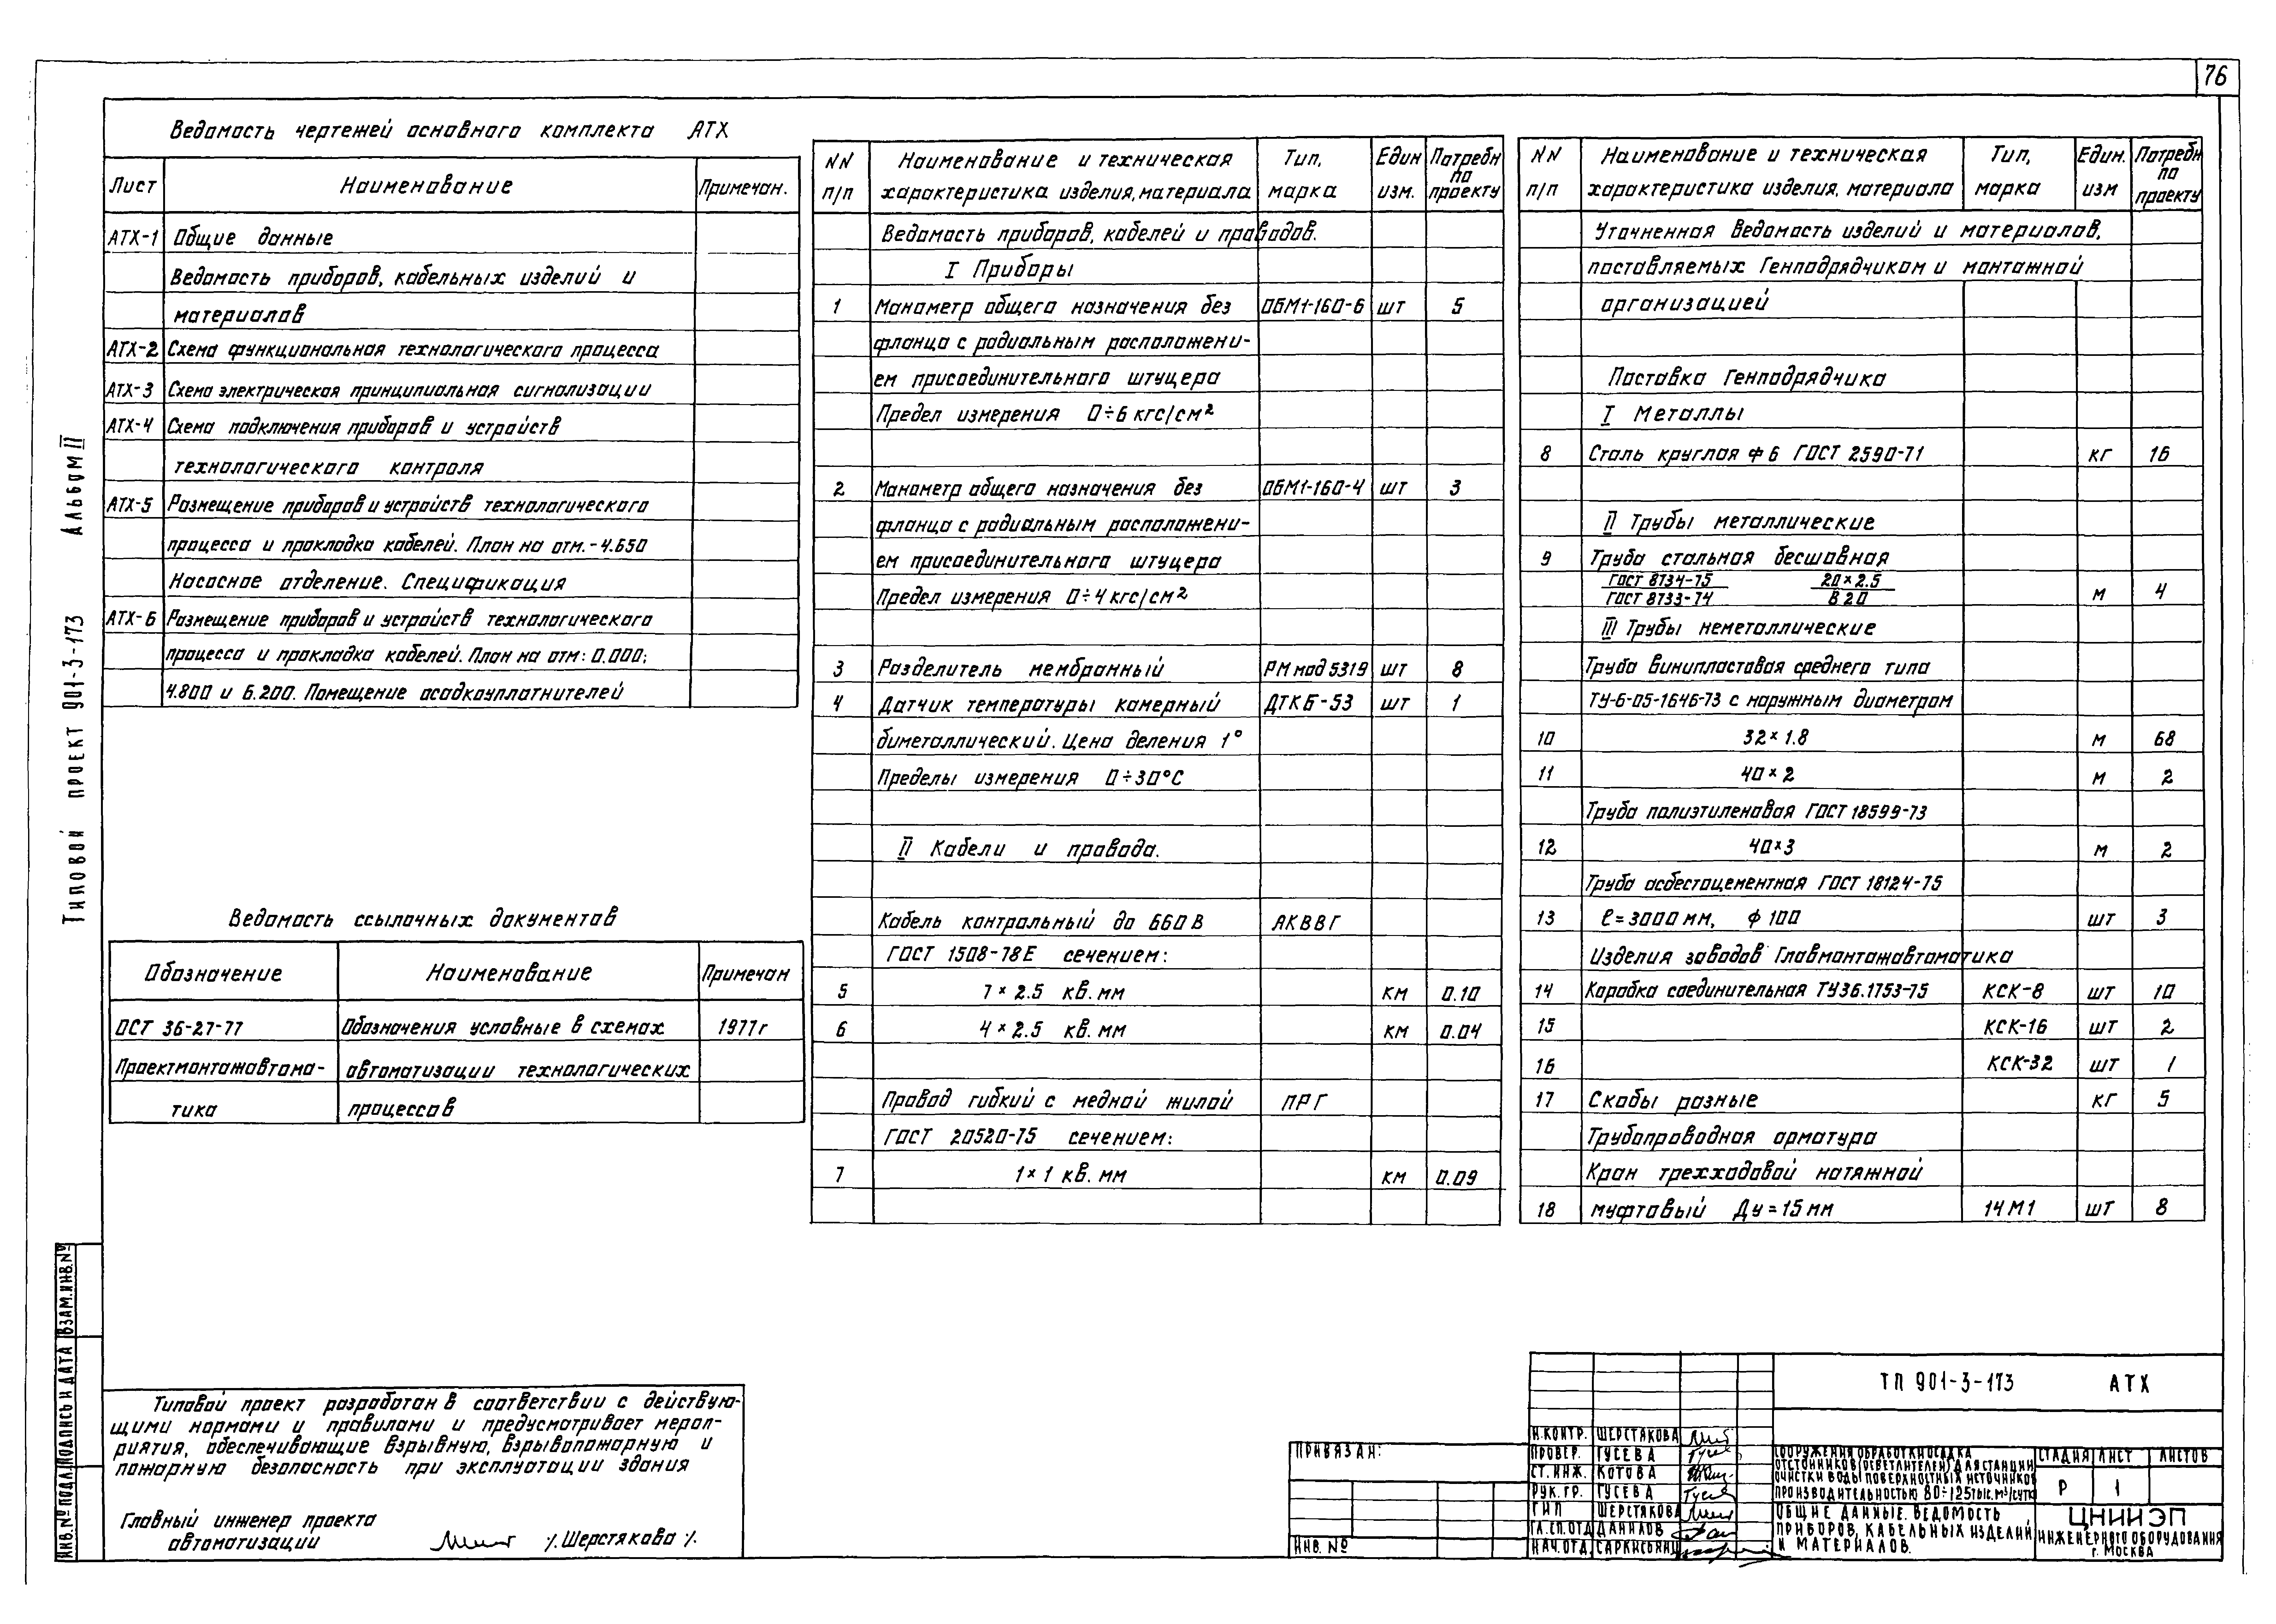 76
Альбом II
Типовой проект 901-3-173
Ведомость чертежей основного комплекта АТХ
Лист Наименование Примечан.
АТХ-1 Общие данные
Ведомость приборов, кабельных изделий и
материалов
АТХ-2 Схема функциональная технологического процесса
АТХ-3 Схема электрическая принципиальная сигнализации
АТХ-4 Схема подключения приборов и устройств
технологического контроля
АТХ-5 Размещение приборов и устройств технологического
процесса и прокладка кабелей. План на отм.-4.650
Насосное отделение. Спецификация
АТХ-6 Размещение приборов и устройств технологического
процесса и прокладка кабелей. План на отм: 0.000;
4.800 и 6.200. Помещение осадкоуплатнителей
Ведомость ссылочных документов
Обозначение Наименование Примечан
ОСТ 36-27-77 Обозначения условные в схемах 1977г
Проектмонтажавтома- автоматизации технологических
тика процессов
NN Наименование и техническая Тип, Един Потребн
п/п характеристика изделия, материала марка изм. по проекту
Ведомость приборов, кабелей и проводов.
I Приборы
1 Манометр общего назначения без ОБМ1-160-6 шт 5
фланца с радиальным расположени-
ем присоединительного штуцера
Предел измерения 0÷6 кгс/см²
2 Манометр общего назначения без ОБМ1-160-4 шт 3
фланца с радиальным расположени-
ем присоединительного штуцера
Предел измерения 0÷4 кгс/см²
3 Разделитель мембранный РМ мод 5319 шт 8
4 Датчик температуры камерный ДТКБ-53 шт 1
биметаллический. Цена деления 1°
Пределы измерения 0÷30°С
II Кабели и провода.
Кабель контрольный до 660 В АКВВГ
ГОСТ 1508-78Е сечением:
5 7 × 2.5 кв. мм км 0.10
6 4 × 2.5 кв. мм км 0.04
Провод гибкий с медной жилой ПРГ
ГОСТ 20520-75 сечением:
7 1 × 1 кв. мм км 0.09
NN Наименование и техническая Тип, Един. Потребн
п/п характеристика изделия, материала марка изм по проекту
Уточненная Ведомость изделий и материалов,
поставляемых Генподрядчиком и монтажной
организацией
Поставка Генподрядчика
I Металлы
8 Сталь круглая ф 6 ГОСТ 2590-71 кг 16
II Трубы металлические
9 Труба стальная бесшовная
ГОСТ 8734-75 20 × 2.5
ГОСТ 8733-74 В 20 м 4
III Трубы неметаллические
Труба винипластовая среднего типа
ТУ-6-05-1646-73 с наружным диаметром
10 32 × 1.8 м 68
11 40 × 2 м 2
Труба полиэтиленовая ГОСТ 18599-73
12 40×3 м 2
Труба асбестоцементная ГОСТ 18124-75
13 ℓ = 3000 мм, ф 100 шт 3
Изделия заводов Главмонтажавтоматика
14 Коробка соединительная ТУ36.1753-75 КСК-8 шт 10
15 КСК-16 шт 2
16 КСК-32 шт 1
17 Скобы разные кг 5
Трубопроводная арматура
Кран трехходовой натяжной
18 муфтовый Ду = 15 мм 14М1 шт 8
Типовой проект разработан в соответствии с действую-
щими нормами и правилами и предусматривает мероп-
риятия, обеспечивающие взрывную, взрывопожарную и
пожарную безопасность при эксплуатации здания
Главный инженер проекта
автоматизации /.Шерстякова/.
ВЗАМ.ИНВ.№
ПОДПИСЬ И ДАТА
ИНВ.№ ПОДЛ.
ПРИВЯЗАН:
ИНВ. №
Н.КОНТР. ШЕРСТЯКОВА
ПРОВЕР. ГУСЕВА
СТ.ИНЖ. КОТОВА
РУК.ГР. ГУСЕВА
ГИП ШЕРСТЯКОВА
ГЛ.СП.ОТД ДАНИЛОВ
НАЧ.ОТД. САРКИСЬЯНЦ
ТП 901-3-173 АТХ
СООРУЖЕНИЯ ОБРАБОТКИ ОСАДКА
ОТСТОЙНИКОВ (ОСВЕТЛИТЕЛЕЙ) ДЛЯ СТАНЦИИ
ОЧИСТКИ ВОДЫ ПОВЕРХНОСТНЫХ ИСТОЧНИКОВ
ПРОИЗВОДИТЕЛЬНОСТЬЮ 80÷125 ТЫС. М³/СУТКИ
СТАДИЯ ЛИСТ ЛИСТОВ
Р 1
ОБЩИЕ ДАННЫЕ. ВЕДОМОСТЬ
ПРИБОРОВ, КАБЕЛЬНЫХ ИЗДЕЛИЙ
И МАТЕРИАЛОВ.
ЦНИИЭП
ИНЖЕНЕРНОГО ОБОРУДОВАНИЯ
г. МОСКВА